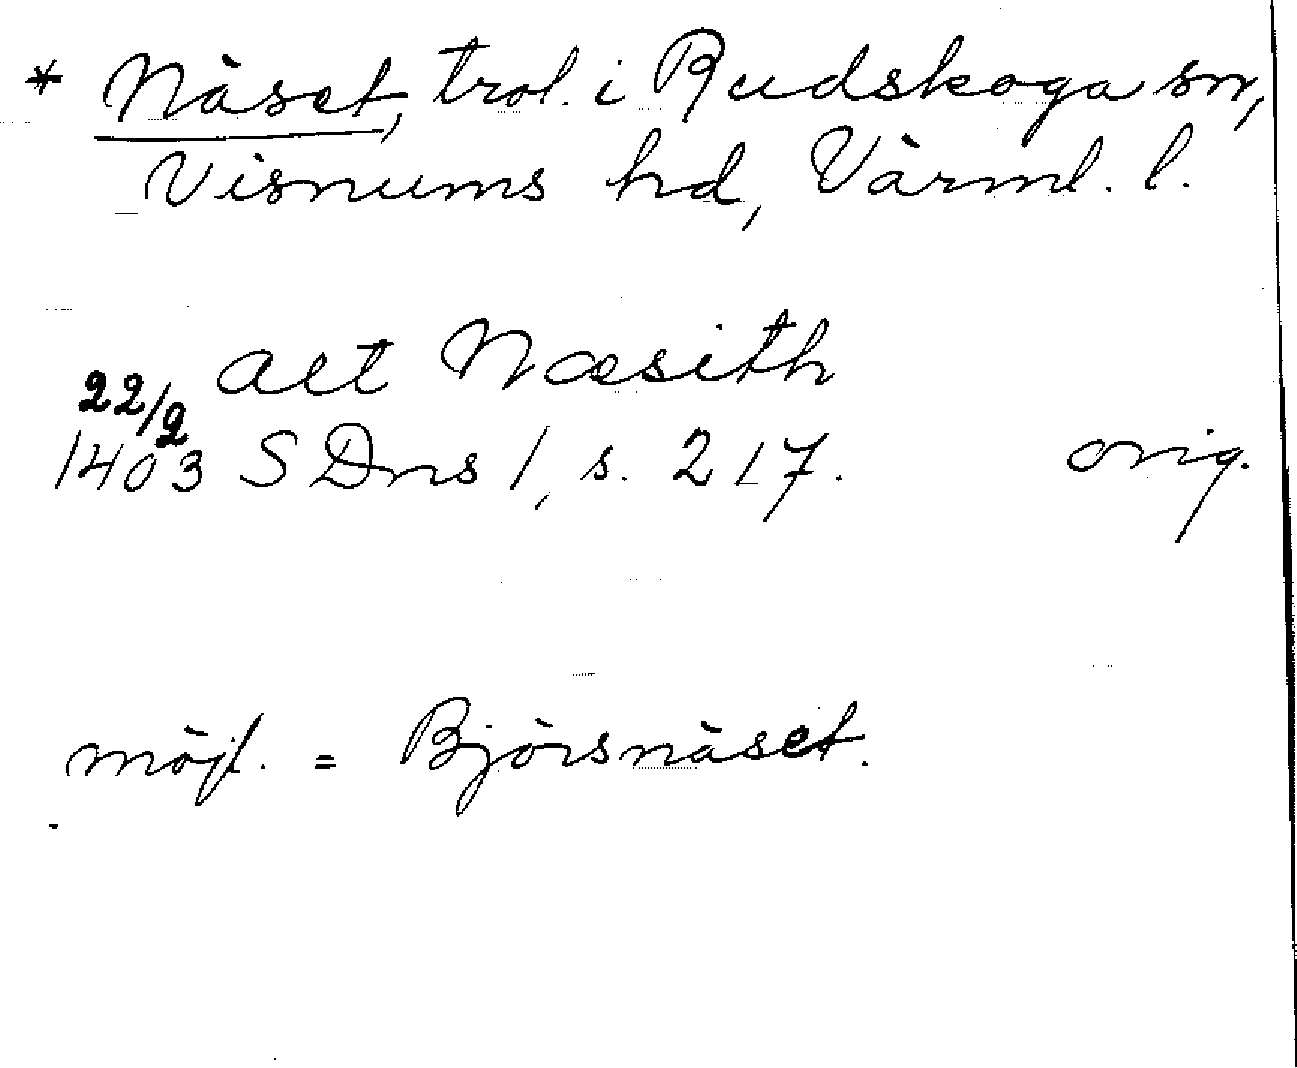 * Näset, trol. i Rudskoga sn,
Visnums hd, Värml. l.
aet Næsith
22/2
1403 SDns 1, s. 217. orig.
möjl. = Björsnäset.